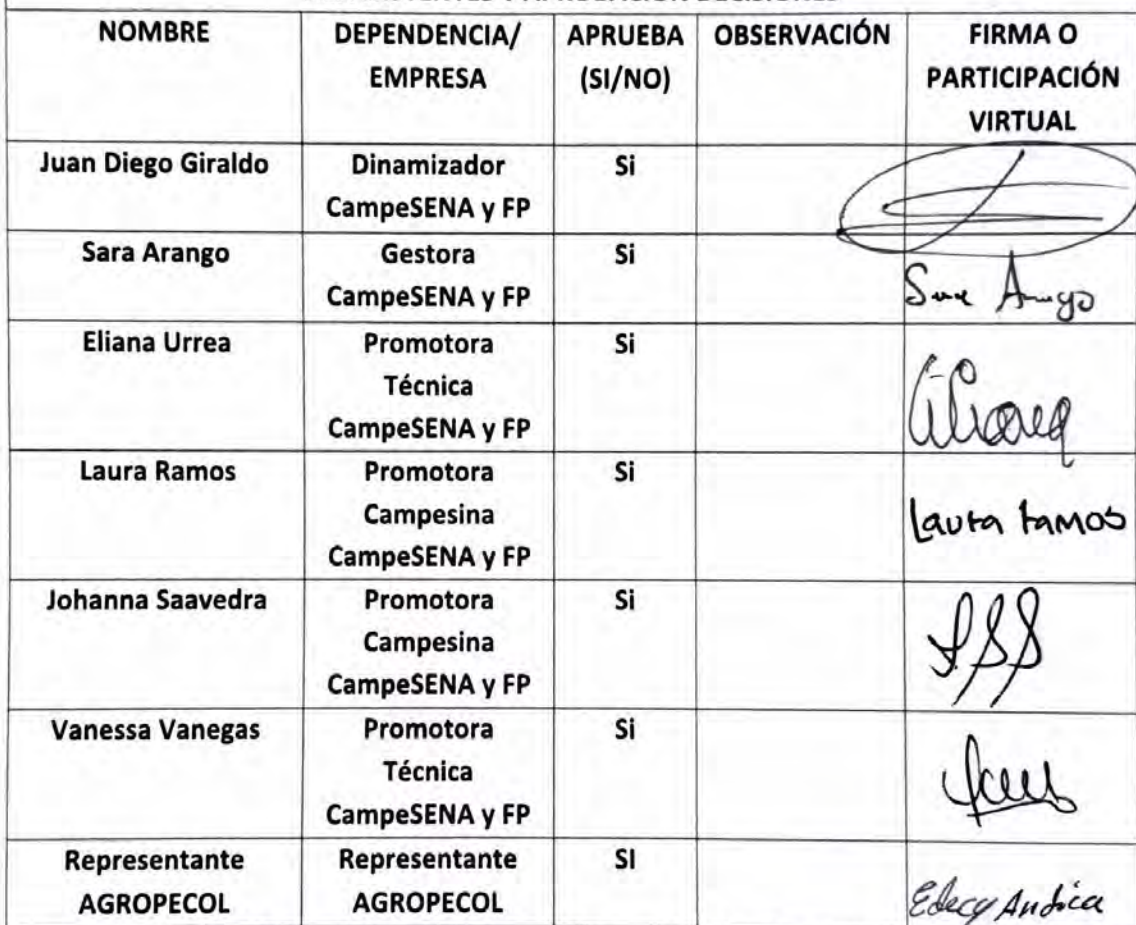 NOMBRE
DEPENDENCIA/
EMPRESA
APRUEBA
(SI/NO)
OBSERVACIÓN
FIRMA O
PARTICIPACIÓN
VIRTUAL
Juan Diego Giraldo
Dinamizador
CampeSENA y FP
Si
Sara Arango
Gestora
CampeSENA y FP
Si
Eliana Urrea
Promotora
Técnica
CampeSENA y FP
Si
Laura Ramos
Promotora
Campesina
CampeSENA y FP
Si
Laura Ramos
Johanna Saavedra
Promotora
Campesina
CampeSENA y FP
Si
Vanessa Vanegas
Promotora
Técnica
CampeSENA y FP
Si
Representante
AGROPECOL
Representante
AGROPECOL
SI